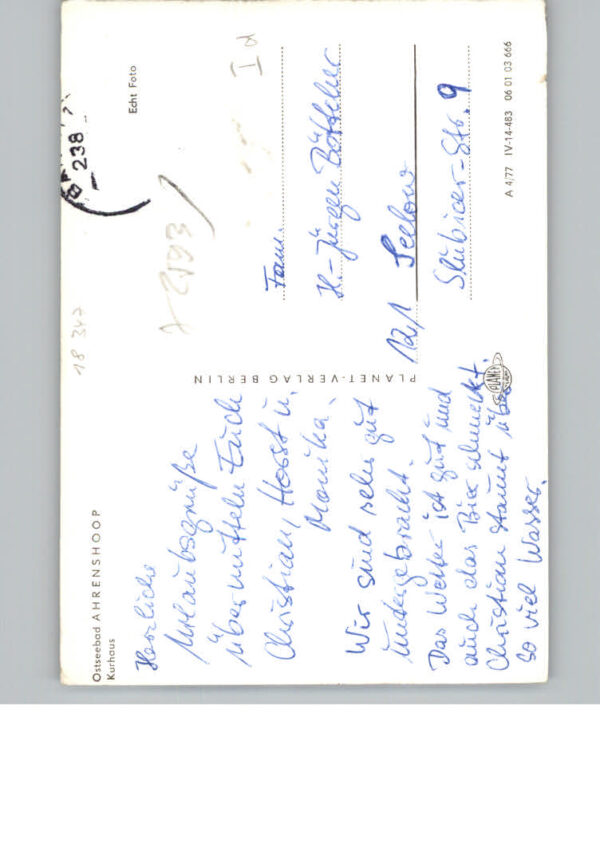 Ostseebad AHRENSHOOP
Kurhaus
Herzliche
Urlaubsgrüße
übermitteln Euch
Christian, Horst u.
Monika.
Wir sind sehr gut
untergebracht.
Das Wetter ist gut und
auch das Bier schmeckt.
Christian staunt über
so viel Wasser.
PLANET-VERLAG BERLIN
PLANET
18 342
238
Echt Foto
I d
Fam.
H.-Jürgen Böttcher
121 Seelow
Slubicer-Str. 9
A 4/77 IV-14-483 06 01 03 666